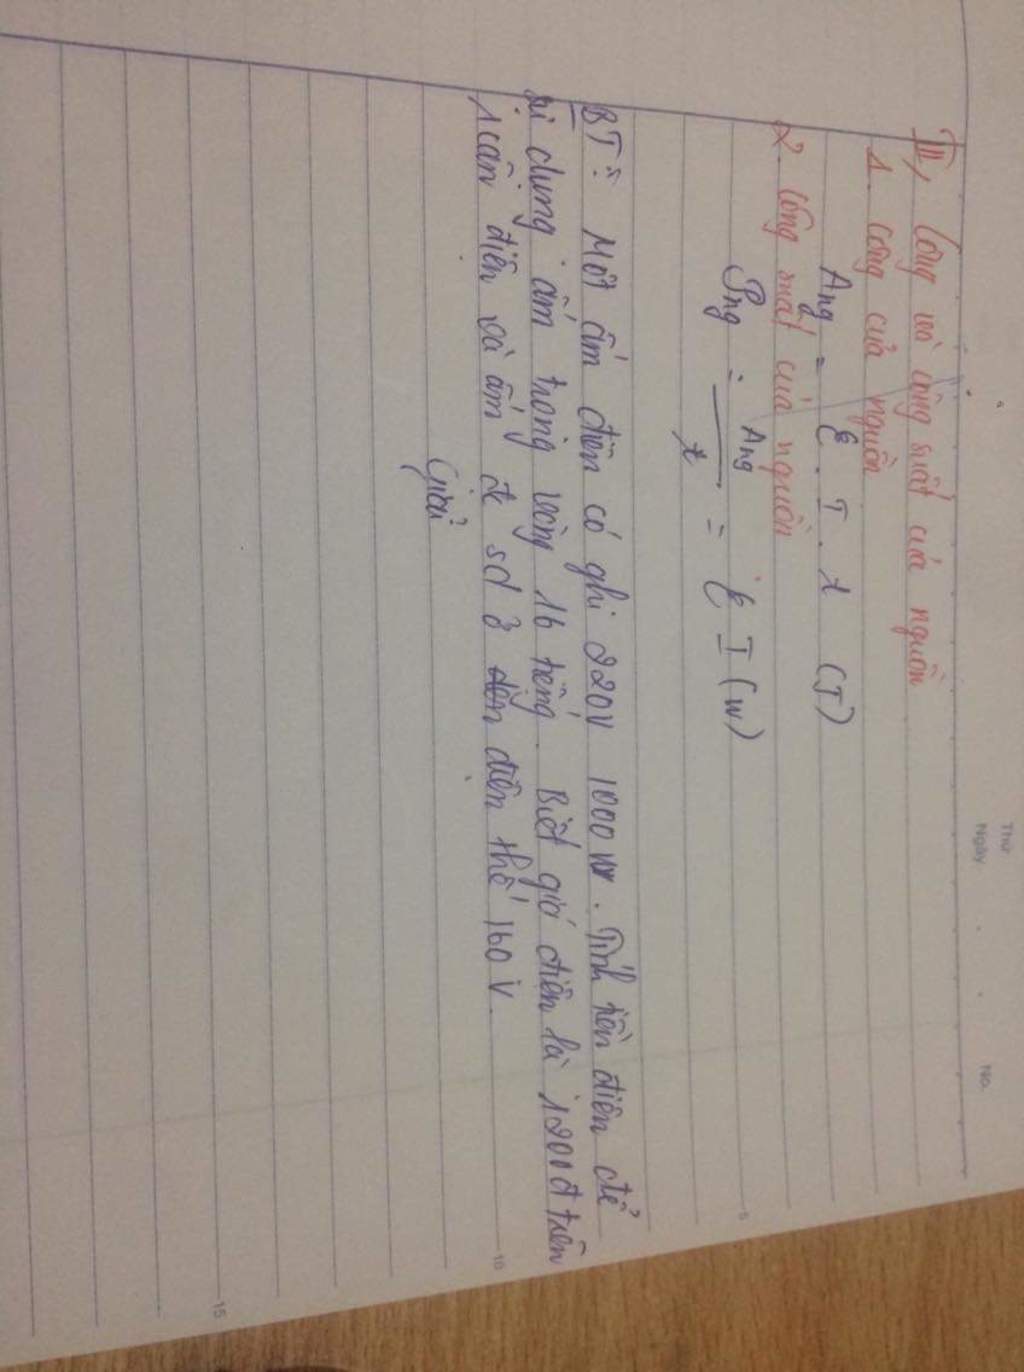 Thứ
Ngày . . No.
III, Công và công suất của nguồn
1. Công của nguồn
Ang = ℰ . I . t (J)
2. Công suất của nguồn
Png = Ang / t = ℰ I (W)
5
BT : Một ấm điện có ghi 220V 1000 W. Tính tiền điện để
sử dụng ấm trong vòng 16 tiếng. Biết giá điện là 1200đ trên
1 cân điện và ấm đc sd ở điện thế 160 V.
10
Giải
15